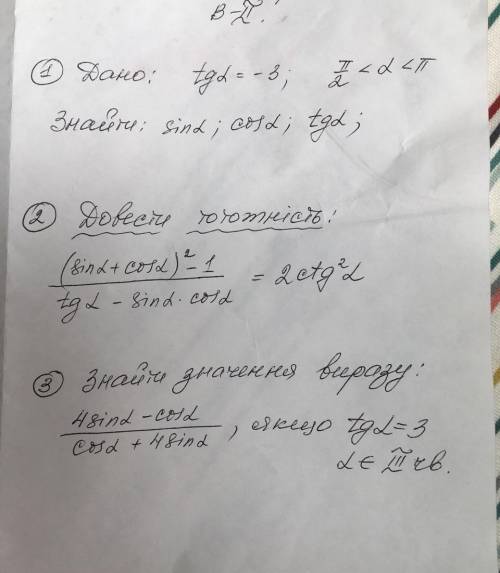 В-II.
① Дано: tgα = -3; π/2 < α < π
Знайти: sinα; cosα; tgα;
② Довести тотожність:
(sinα + cosα)² - 1 / tgα - sinα · cosα = 2ctg²α
③ Знайти значення виразу:
4sinα - cosα / cosα + 4sinα, якщо tgα = 3
α ∈ III чв.